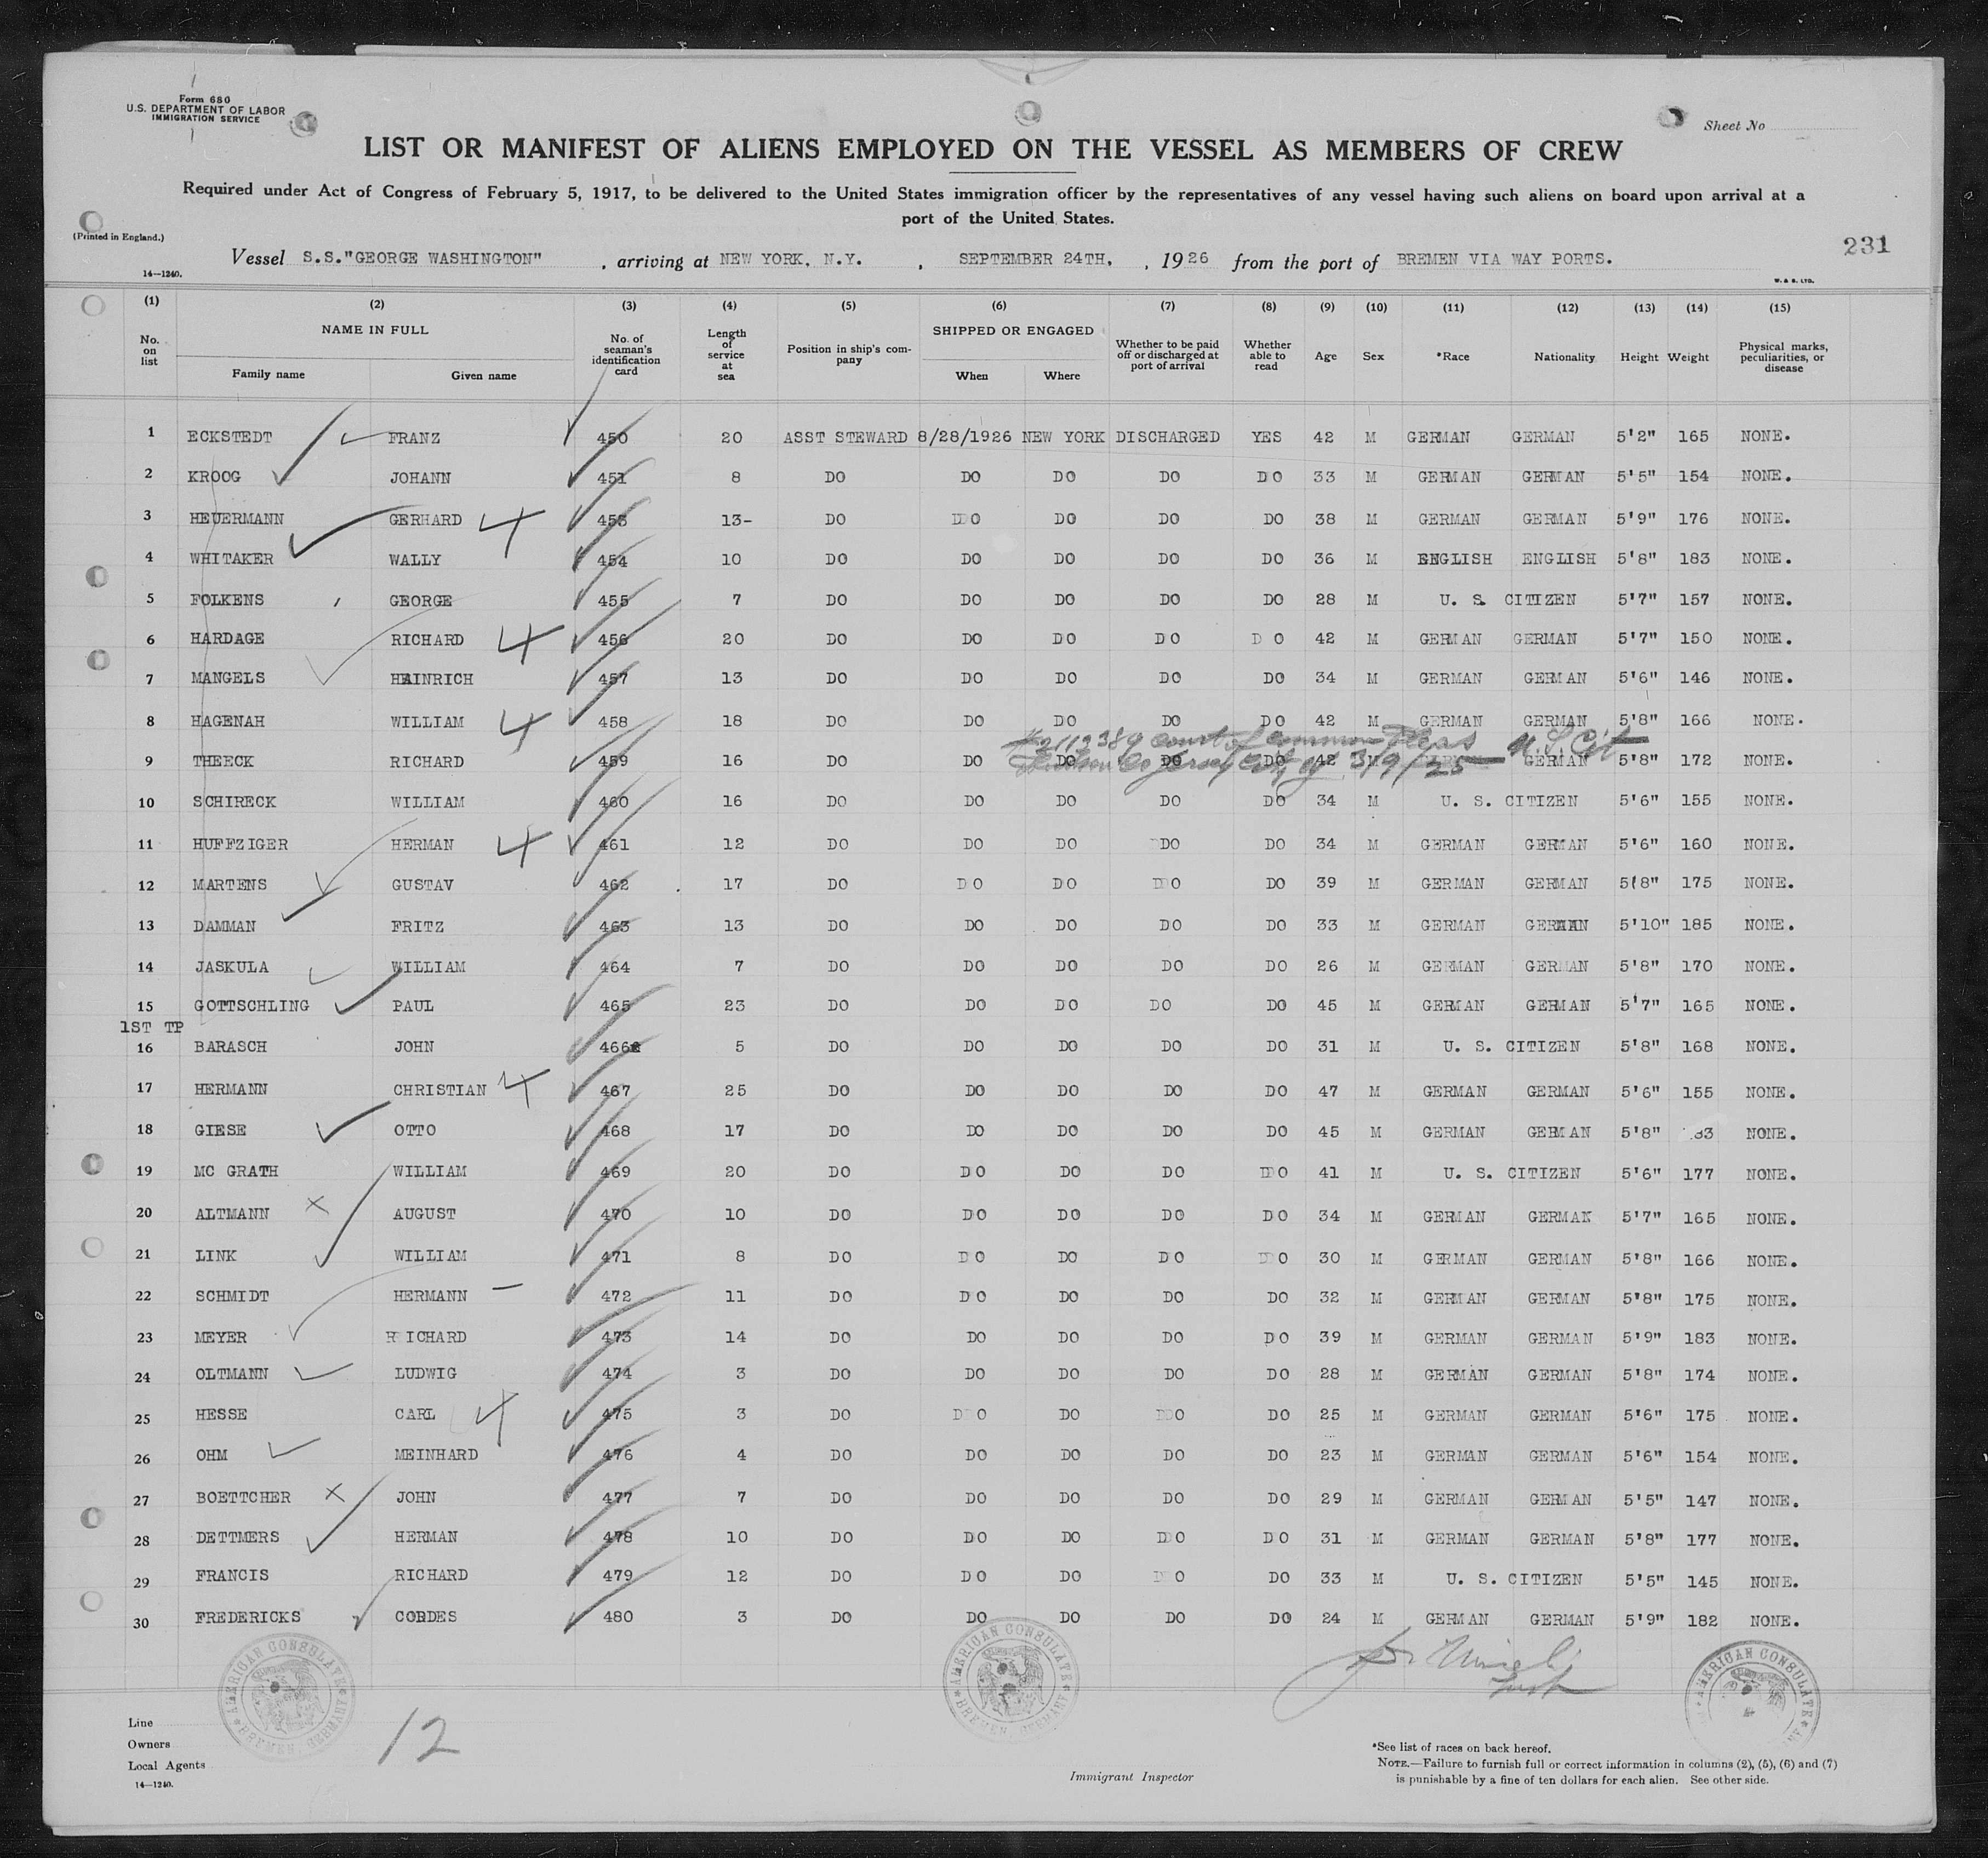 Form 680
U.S. DEPARTMENT OF LABOR
IMMIGRATION SERVICE
Sheet No
LIST OR MANIFEST OF ALIENS EMPLOYED ON THE VESSEL AS MEMBERS OF CREW
Required under Act of Congress of February 5, 1917, to be delivered to the United States immigration officer by the representatives of any vessel having such aliens on board upon arrival at a
port of the United States.
(Printed in England.)
231
Vessel S.S."GEORGE WASHINGTON" , arriving at NEW YORK, N.Y. , SEPTEMBER 24TH, , 1926 from the port of BREMEN VIA WAY PORTS.
14—1240.
W. & S. LTD.
(1) (2) (3) (4) (5) (6) (7) (8) (9) (10) (11) (12) (13) (14) (15)
No. on list NAME IN FULL Family name Given name No. of seaman's identification card Length of service at sea Position in ship's company SHIPPED OR ENGAGED When Where Whether to be paid off or discharged at port of arrival Whether able to read Age Sex *Race Nationality Height Weight Physical marks, peculiarities, or disease
1 ECKSTEDT FRANZ 450 20 ASST STEWARD 8/28/1926 NEW YORK DISCHARGED YES 42 M GERMAN GERMAN 5'2" 165 NONE.
2 KROOG JOHANN 451 8 DO DO DO DO DO 33 M GERMAN GERMAN 5'5" 154 NONE.
3 HEUERMANN GERHARD 4 453 13- DO DO DO DO DO 38 M GERMAN GERMAN 5'9" 176 NONE.
4 WHITAKER WALLY 454 10 DO DO DO DO DO 36 M ENGLISH ENGLISH 5'8" 183 NONE.
5 FOLKENS GEORGE 455 7 DO DO DO DO DO 28 M U. S. CITIZEN 5'7" 157 NONE.
6 HARDAGE RICHARD 4 456 20 DO DO DO DO DO 42 M GERMAN GERMAN 5'7" 150 NONE.
7 MANGELS HAINRICH 457 13 DO DO DO DO DO 34 M GERMAN GERMAN 5'6" 146 NONE.
8 HAGENAH WILLIAM 4 458 18 DO DO DO DO DO 42 M GERMAN GERMAN 5'8" 166 NONE.
#2112389 Court of Common Pleas U.S. Cit
Hudson Co Jersey City NJ 3/9/25
9 THEECK RICHARD 459 16 DO DO DO DO 42 M GERMAN 5'8" 172 NONE.
10 SCHIRECK WILLIAM 460 16 DO DO DO DO DO 34 M U. S. CITIZEN 5'6" 155 NONE.
11 HUFFZIGER HERMAN 4 461 12 DO DO DO DO DO 34 M GERMAN GERMAN 5'6" 160 NONE.
12 MARTENS GUSTAV 462 17 DO DO DO DO DO 39 M GERMAN GERMAN 5'8" 175 NONE.
13 DAMMAN FRITZ 463 13 DO DO DO DO DO 33 M GERMAN GERMAN 5'10" 185 NONE.
14 JASKULA WILLIAM 464 7 DO DO DO DO DO 26 M GERMAN GERMAN 5'8" 170 NONE.
15 GOTTSCHLING PAUL 465 23 DO DO DO DO DO 45 M GERMAN GERMAN 5'7" 165 NONE.
1ST TP
16 BARASCH JOHN 466 5 DO DO DO DO DO 31 M U. S. CITIZEN 5'8" 168 NONE.
17 HERMANN CHRISTIAN 4 467 25 DO DO DO DO DO 47 M GERMAN GERMAN 5'6" 155 NONE.
18 GIESE OTTO 468 17 DO DO DO DO DO 45 M GERMAN GERMAN 5'8" NONE.
19 MC GRATH WILLIAM 469 20 DO DO DO DO DO 41 M U. S. CITIZEN 5'6" 177 NONE.
20 ALTMANN X AUGUST 470 10 DO DO DO DO DO 34 M GERMAN GERMAK 5'7" 165 NONE.
21 LINK WILLIAM 471 8 DO DO DO DO DO 30 M GERMAN GERMAN 5'8" 166 NONE.
22 SCHMIDT HERMANN — 472 11 DO DO DO DO DO 32 M GERMAN GERMAN 5'8" 175 NONE.
23 MEYER RICHARD 473 14 DO DO DO DO DO 39 M GERMAN GERMAN 5'9" 183 NONE.
24 OLTMANN LUDWIG 474 3 DO DO DO DO DO 28 M GERMAN GERMAN 5'8" 174 NONE.
25 HESSE CARL 4 475 3 DO DO DO DO DO 25 M GERMAN GERMAN 5'6" 175 NONE.
26 OHM MEINHARD 476 4 DO DO DO DO DO 23 M GERMAN GERMAN 5'6" 154 NONE.
27 BOETTCHER X JOHN 477 7 DO DO DO DO DO 29 M GERMAN GERMAN 5'5" 147 NONE.
28 DETTMERS HERMAN 478 10 DO DO DO DO DO 31 M GERMAN GERMAN 5'8" 177 NONE.
29 FRANCIS RICHARD 479 12 DO DO DO DO DO 33 M U. S. CITIZEN 5'5" 145 NONE.
30 FREDERICKS CORDES 480 3 DO DO DO DO DO 24 M GERMAN GERMAN 5'9" 182 NONE.
AMERICAN CONSULATE BREMEN, GERMANY
AMERICAN CONSULATE BREMEN, GERMANY
AMERICAN CONSULATE
Line
Owners
Local Agents
14—1240.
12
Immigrant Inspector
*See list of races on back hereof.
NOTE.—Failure to furnish full or correct information in columns (2), (5), (6) and (7)
is punishable by a fine of ten dollars for each alien. See other side.